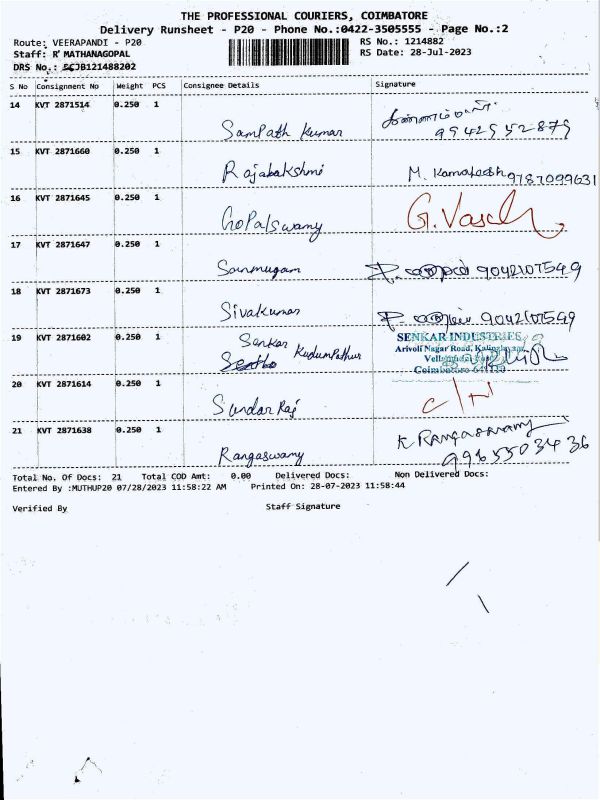 THE PROFESSIONAL COURIERS, COIMBATORE
Delivery Runsheet - P20 - Phone No.:0422-3505555 - Page No.:2
Route: VEERAPANDI - P20 RS No.: 1214882
Staff: R MATHANAGOPAL RS Date: 28-Jul-2023
DRS No.: 121488202
S No Consignment No Weight PCS Consignee Details Signature
14 KVT 2871514 0.250 1
Sampath Kumar 9942952879
15 KVT 2871660 0.250 1
Rajalakshmi M. Kamalesh 9787099631
16 KVT 2871645 0.250 1
Gopalswamy
17 KVT 2871647 0.250 1
Sanmugam 9042107599
18 KVT 2871673 0.250 1
Sivakumar 9042107599
19 KVT 2871602 0.250 1
Senkar Kudumpathur
SENKAR INDUSTRIES
Arivoli Nagar Road,
Coimbatore
20 KVT 2871614 0.250 1
Sundar Raj C/N
21 KVT 2871638 0.250 1
Rangaswamy K Rangaswamy
9965503436
Total No. Of Docs: 21 Total COD Amt: 0.00 Delivered Docs: Non Delivered Docs:
Entered By :MUTHUP20 07/28/2023 11:58:22 AM Printed On: 28-07-2023 11:58:44
Verified By Staff Signature